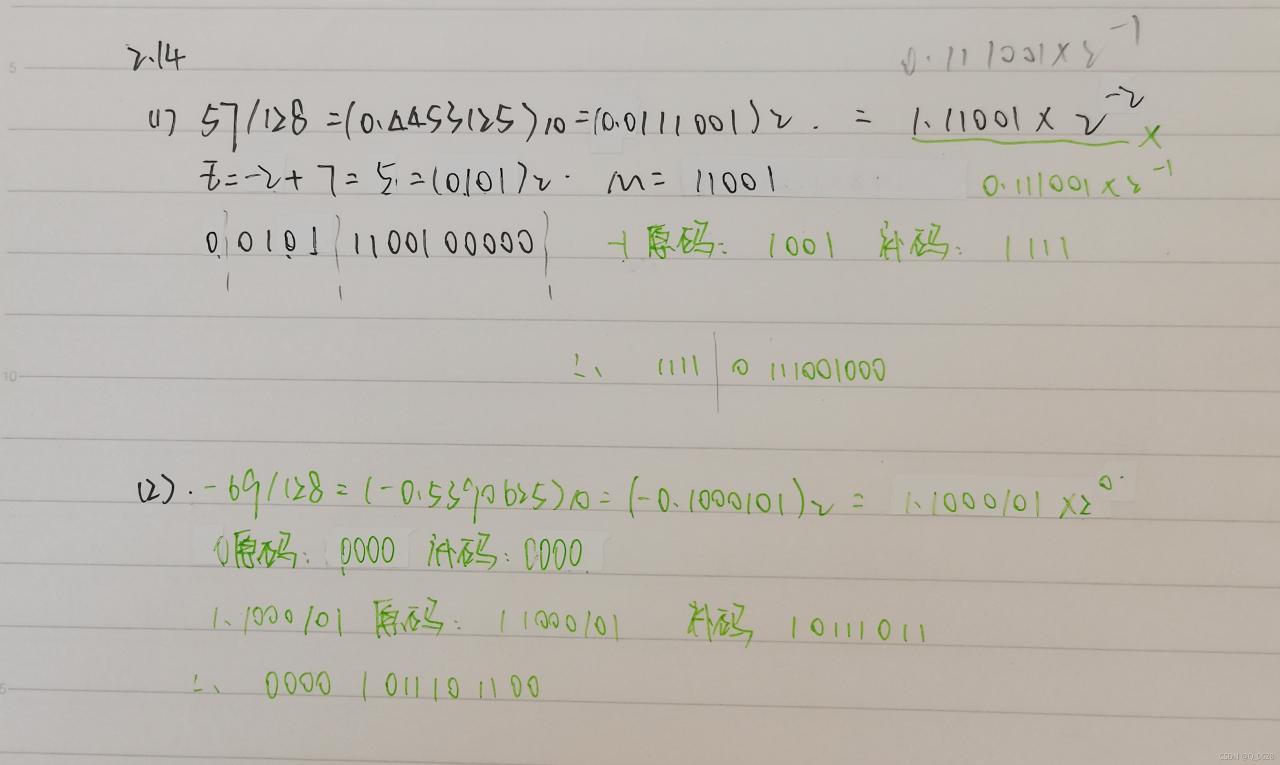 2.14
0.111001×2^-1
(1) 57/128 = (0.4453125)10 = (0.0111001)2 . = 1.11001 × 2^-2 ×
E = -2 + 7 = 5 = (0101)2 . M = 11001 0.111001×2^-1
0 0101 1100100000 -1原码: 1001 补码: 1111
∴ 1111 0 111001000
(2). -69/128 = (-0.5390625)10 = (-0.1000101)2 = 1.1000101 ×2^0.
0原码: 0000 补码: 0000
1.1000101 原码: 11000101 补码 10111011
∴ 0000 1011101100
5
10
CSDN